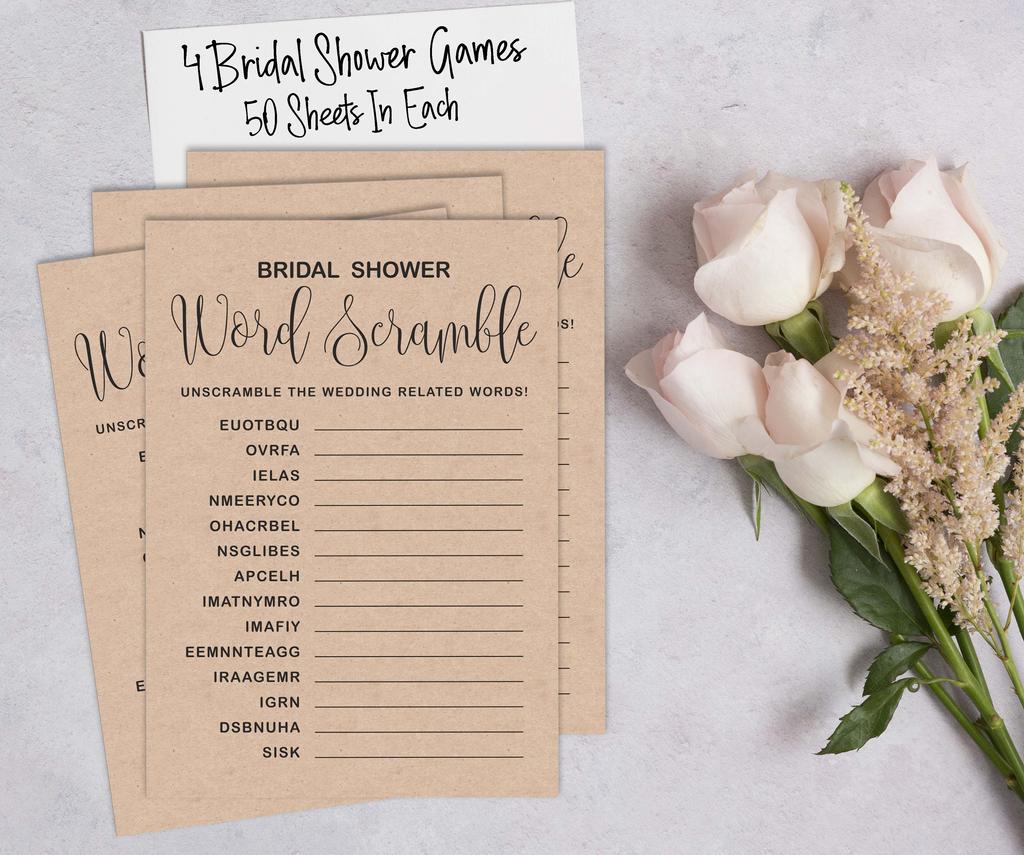 4 Bridal Shower Games
50 Sheets In Each
BRIDAL SHOWER
Word Scramble
UNSCRAMBLE THE WEDDING RELATED WORDS!
EUOTBQU
OVRFA
IELAS
NMEERYCO
OHACRBEL
NSGLIBES
APCELH
IMATNYMRO
IMAFIY
EEMNNTEAGG
IRAAGEMR
IGRN
DSBNUHA
SISK
Wo
UNSCR